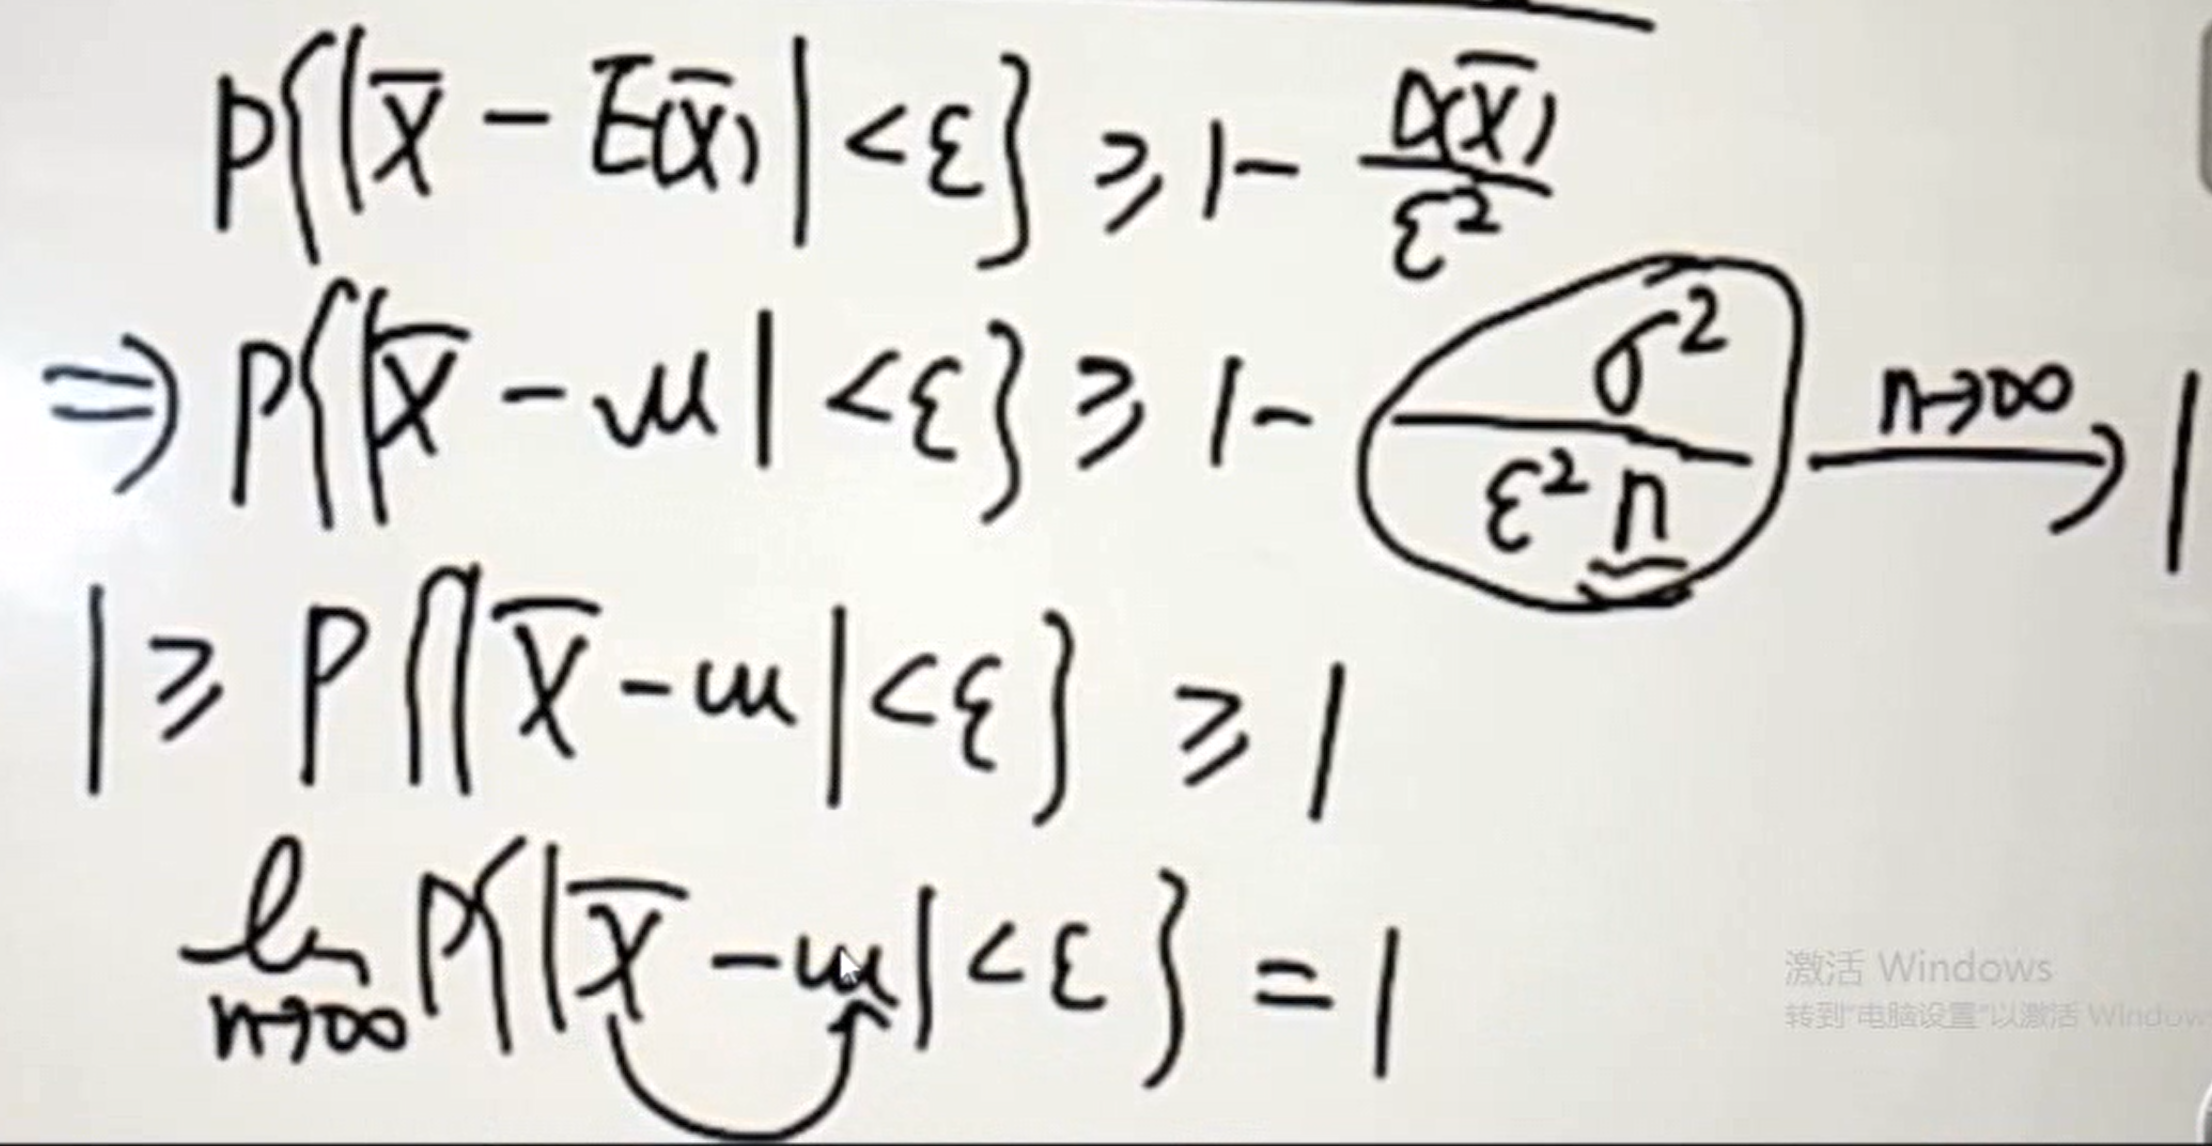 P{|X̄ - E(X̄)| < ε} ≥ 1 - D(X̄)/ε²
⇒ P{|X̄ - μ| < ε} ≥ 1 - σ²/(ε² n) n→∞ → 1
1 ≥ P{|X̄ - μ| < ε} ≥ 1
lim n→∞ P{|X̄ - μ| < ε} = 1
激活 Windows
转到"电脑设置"以激活 Window